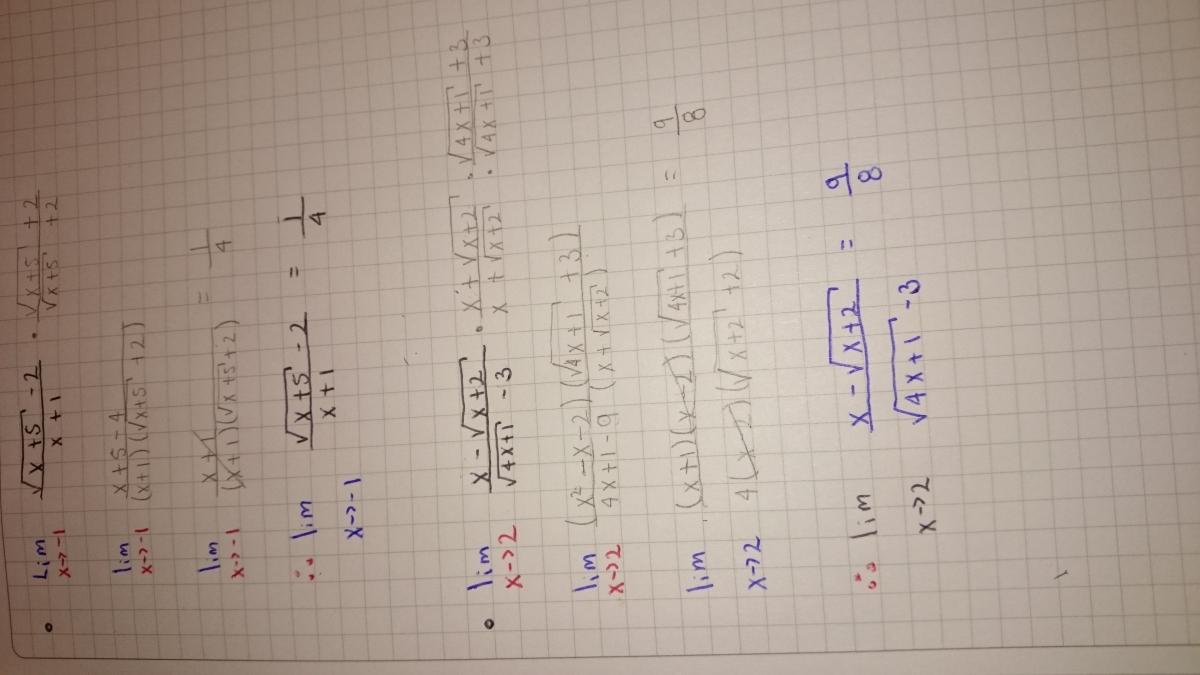 • Lim x→-1 (√(x+5) - 2)/(x+1) · (√(x+5) + 2)/(√(x+5) + 2)
lim x→-1 (x+5-4)/((x+1)(√(x+5) + 2))
lim x→-1 (x+1)/((x+1)(√(x+5) + 2)) = 1/4
∴ lim x→-1 (√(x+5) - 2)/(x+1) = 1/4
• lim x→2 (x - √(x+2))/(√(4x+1) - 3) · (x + √(x+2))/(x + √(x+2)) · (√(4x+1) + 3)/(√(4x+1) + 3)
lim x→2 ((x² - x - 2)(√(4x+1) + 3))/(4x+1-9 (x + √(x+2)))
lim x→2 ((x+1)(x-2)(√(4x+1) + 3))/(4(x-2)(√(x+2) + 2)) = 9/8
∴ lim x→2 (x - √(x+2))/(√(4x+1) - 3) = 9/8